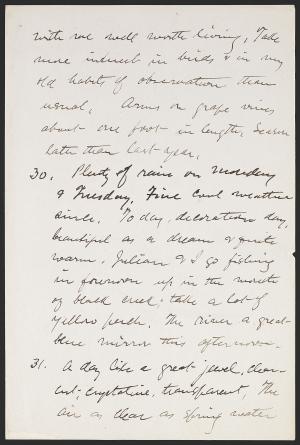 with me well worth living. Take
more interest in birds & in my
old habits of observation than
usual. Arms on grape vines
about one foot in length. Season
later than last year.
30. Plenty of rain on Monday
& Tuesday. Fine cool weather
since. To day, decoration day,
beautiful as a dream & quite
warm. Julian & I go fishing
in forenoon up in the mouth
of black creek; take a lot of
yellow perch. The river a great
blue mirror this afternoon.
31. A day like a great jewel, clear-
cut, crystaline, transparent, The
air as clear as spring water